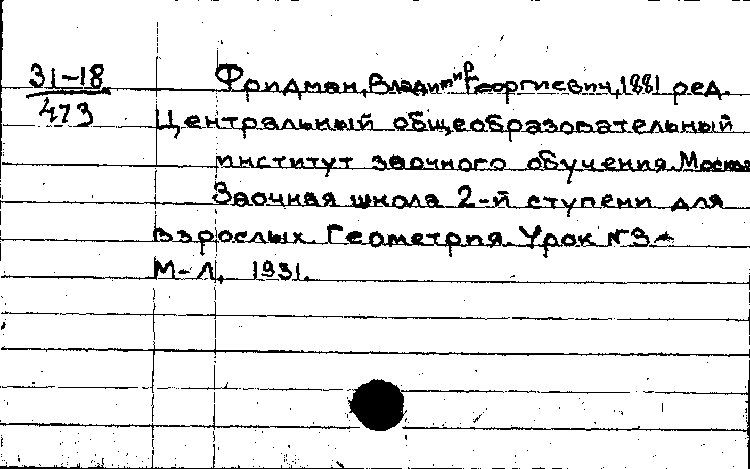 31-18
473
Фридман, Владимир Георгиевич, 1881 ред.
Центральный общеобразовательный
институт заочного обучения. Москва
Заочная школа 2-й ступени для
взрослых. Геометрия. Урок №9-
М-Л, 1931.